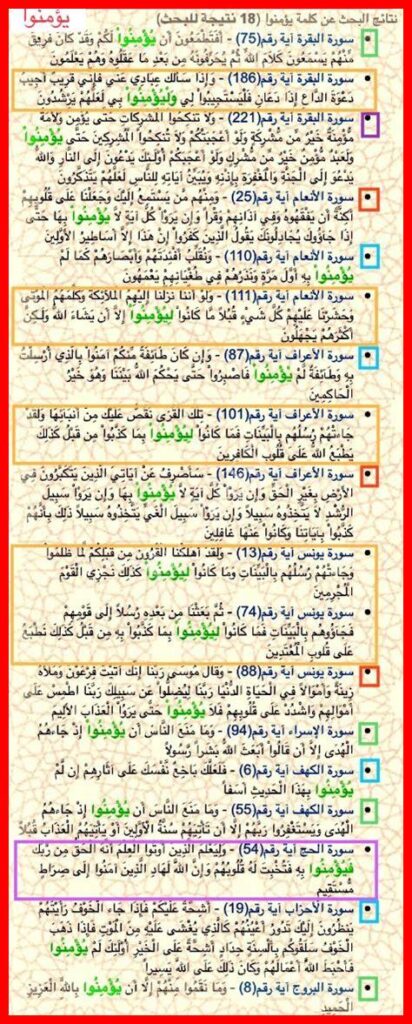 نتائج البحث عن كلمة يؤمنوا (18 نتيجة للبحث) يؤمنوا
سورة البقرة آية رقم(75) - أَفَتَطْمَعُونَ أَن يُؤْمِنُواْ لَكُمْ وَقَدْ كَانَ فَرِيقٌ
مِّنْهُمْ يَسْمَعُونَ كَلاَمَ اللّهِ ثُمَّ يُحَرِّفُونَهُ مِن بَعْدِ مَا عَقَلُوهُ وَهُمْ يَعْلَمُونَ
سورة البقرة آية رقم(186) - وَإِذَا سَأَلَكَ عِبَادِي عَنِّي فَإِنِّي قَرِيبٌ أُجِيبُ
دَعْوَةَ الدَّاعِ إِذَا دَعَانِ فَلْيَسْتَجِيبُواْ لِي وَلْيُؤْمِنُواْ بِي لَعَلَّهُمْ يَرْشُدُونَ
سورة البقرة آية رقم(221) - وَلاَ تَنكِحُواْ الْمُشْرِكَاتِ حَتَّى يُؤْمِنَّ وَلأَمَةٌ
مُّؤْمِنَةٌ خَيْرٌ مِّن مُّشْرِكَةٍ وَلَوْ أَعْجَبَتْكُمْ وَلاَ تُنكِحُواْ الْمُشِرِكِينَ حَتَّى يُؤْمِنُواْ
وَلَعَبْدٌ مُّؤْمِنٌ خَيْرٌ مِّن مُّشْرِكٍ وَلَوْ أَعْجَبَكُمْ أُوْلَئِكَ يَدْعُونَ إِلَى النَّارِ وَاللّهُ
يَدْعُوَ إِلَى الْجَنَّةِ وَالْمَغْفِرَةِ بِإِذْنِهِ وَيُبَيِّنُ آيَاتِهِ لِلنَّاسِ لَعَلَّهُمْ يَتَذَكَّرُونَ
سورة الأنعام آية رقم(25) - وَمِنْهُم مَّن يَسْتَمِعُ إِلَيْكَ وَجَعَلْنَا عَلَى قُلُوبِهِمْ
أَكِنَّةً أَن يَفْقَهُوهُ وَفِي آذَانِهِمْ وَقْرًا وَإِن يَرَوْاْ كُلَّ آيَةٍ لاَّ يُؤْمِنُواْ بِهَا حَتَّى
إِذَا جَآؤُوكَ يُجَادِلُونَكَ يَقُولُ الَّذِينَ كَفَرُواْ إِنْ هَذَآ إِلاَّ أَسَاطِيرُ الأَوَّلِينَ
سورة الأنعام آية رقم(110) - وَنُقَلِّبُ أَفْئِدَتَهُمْ وَأَبْصَارَهُمْ كَمَا لَمْ
يُؤْمِنُواْ بِهِ أَوَّلَ مَرَّةٍ وَنَذَرُهُمْ فِي طُغْيَانِهِمْ يَعْمَهُونَ
سورة الأنعام آية رقم(111) - وَلَوْ أَنَّنَا نَزَّلْنَا إِلَيْهِمُ الْمَلآئِكَةَ وَكَلَّمَهُمُ الْمَوْتَى
وَحَشَرْنَا عَلَيْهِمْ كُلَّ شَيْءٍ قُبُلاً مَّا كَانُواْ لِيُؤْمِنُواْ إِلاَّ أَن يَشَاءَ اللّهُ وَلَكِنَّ
أَكْثَرَهُمْ يَجْهَلُونَ
سورة الأعراف آية رقم(87) - وَإِن كَانَ طَآئِفَةٌ مِّنكُمْ آمَنُواْ بِالَّذِي أُرْسِلْتُ
بِهِ وَطَآئِفَةٌ لَّمْ يْؤْمِنُواْ فَاصْبِرُواْ حَتَّى يَحْكُمَ اللّهُ بَيْنَنَا وَهُوَ خَيْرُ
الْحَاكِمِينَ
سورة الأعراف آية رقم(101) - تِلْكَ الْقُرَى نَقُصُّ عَلَيْكَ مِنْ أَنبَآئِهَا وَلَقَدْ
جَاءتْهُمْ رُسُلُهُم بِالْبَيِّنَاتِ فَمَا كَانُواْ لِيُؤْمِنُواْ بِمَا كَذَّبُواْ مِن قَبْلُ كَذَلِكَ
يَطْبَعُ اللّهُ عَلَىَ قُلُوبِ الْكَافِرِينَ
سورة الأعراف آية رقم(146) - سَأَصْرِفُ عَنْ آيَاتِيَ الَّذِينَ يَتَكَبَّرُونَ فِي
الأَرْضِ بِغَيْرِ الْحَقِّ وَإِن يَرَوْاْ كُلَّ آيَةٍ لاَّ يُؤْمِنُواْ بِهَا وَإِن يَرَوْاْ سَبِيلَ
الرُّشْدِ لاَ يَتَّخِذُوهُ سَبِيلاً وَإِن يَرَوْاْ سَبِيلَ الْغَيِّ يَتَّخِذُوهُ سَبِيلاً ذَلِكَ بِأَنَّهُمْ
كَذَّبُواْ بِآيَاتِنَا وَكَانُواْ عَنْهَا غَافِلِينَ
سورة يونس آية رقم(13) - وَلَقَدْ أَهْلَكْنَا الْقُرُونَ مِن قَبْلِكُمْ لَمَّا ظَلَمُواْ
وَجَاءتْهُمْ رُسُلُهُم بِالْبَيِّنَاتِ وَمَا كَانُواْ لِيُؤْمِنُواْ كَذَلِكَ نَجْزِي الْقَوْمَ
الْمُجْرِمِينَ
سورة يونس آية رقم(74) - ثُمَّ بَعَثْنَا مِن بَعْدِهِ رُسُلاً إِلَى قَوْمِهِمْ
فَجَآؤُوهُم بِالْبَيِّنَاتِ فَمَا كَانُواْ لِيُؤْمِنُواْ بِمَا كَذَّبُواْ بِهِ مِن قَبْلُ كَذَلِكَ نَطْبَعُ
عَلَى قُلُوبِ الْمُعْتَدِينَ
سورة يونس آية رقم(88) - وَقَالَ مُوسَى رَبَّنَا إِنَّكَ آتَيْتَ فِرْعَوْنَ وَمَلأهُ
زِينَةً وَأَمْوَالاً فِي الْحَيَاةِ الدُّنْيَا رَبَّنَا لِيُضِلُّواْ عَن سَبِيلِكَ رَبَّنَا اطْمِسْ عَلَى
أَمْوَالِهِمْ وَاشْدُدْ عَلَى قُلُوبِهِمْ فَلاَ يُؤْمِنُواْ حَتَّى يَرَوُاْ الْعَذَابَ الأَلِيمَ
سورة الإسراء آية رقم(94) - وَمَا مَنَعَ النَّاسَ أَن يُؤْمِنُواْ إِذْ جَاءهُمُ
الْهُدَى إِلاَّ أَن قَالُواْ أَبَعَثَ اللّهُ بَشَرًا رَّسُولاً
سورة الكهف آية رقم(6) - فَلَعَلَّكَ بَاخِعٌ نَّفْسَكَ عَلَى آثَارِهِمْ إِن لَّمْ
يُؤْمِنُوا بِهَذَا الْحَدِيثِ أَسَفًا
سورة الكهف آية رقم(55) - وَمَا مَنَعَ النَّاسَ أَن يُؤْمِنُوا إِذْ جَاءهُمُ
الْهُدَى وَيَسْتَغْفِرُوا رَبَّهُمْ إِلَّا أَن تَأْتِيَهُمْ سُنَّةُ الْأَوَّلِينَ أَوْ يَأْتِيَهُمُ الْعَذَابُ قُبُلًا
سورة الحج آية رقم(54) - وَلِيَعْلَمَ الَّذِينَ أُوتُوا الْعِلْمَ أَنَّهُ الْحَقُّ مِن رَّبِّكَ
فَيُؤْمِنُوا بِهِ فَتُخْبِتَ لَهُ قُلُوبُهُمْ وَإِنَّ اللَّهَ لَهَادِ الَّذِينَ آمَنُوا إِلَى صِرَاطٍ
مُّسْتَقِيمٍ
سورة الأحزاب آية رقم(19) - أَشِحَّةً عَلَيْكُمْ فَإِذَا جَاء الْخَوْفُ رَأَيْتَهُمْ
يَنظُرُونَ إِلَيْكَ تَدُورُ أَعْيُنُهُمْ كَالَّذِي يُغْشَى عَلَيْهِ مِنَ الْمَوْتِ فَإِذَا ذَهَبَ
الْخَوْفُ سَلَقُوكُم بِأَلْسِنَةٍ حِدَادٍ أَشِحَّةً عَلَى الْخَيْرِ أُوْلَئِكَ لَمْ يُؤْمِنُوا
فَأَحْبَطَ اللَّهُ أَعْمَالَهُمْ وَكَانَ ذَلِكَ عَلَى اللَّهِ يَسِيرًا
سورة البروج آية رقم(8) - وَمَا نَقَمُوا مِنْهُمْ إِلَّا أَن يُؤْمِنُوا بِاللَّهِ الْعَزِيزِ
الْحَمِيدِ